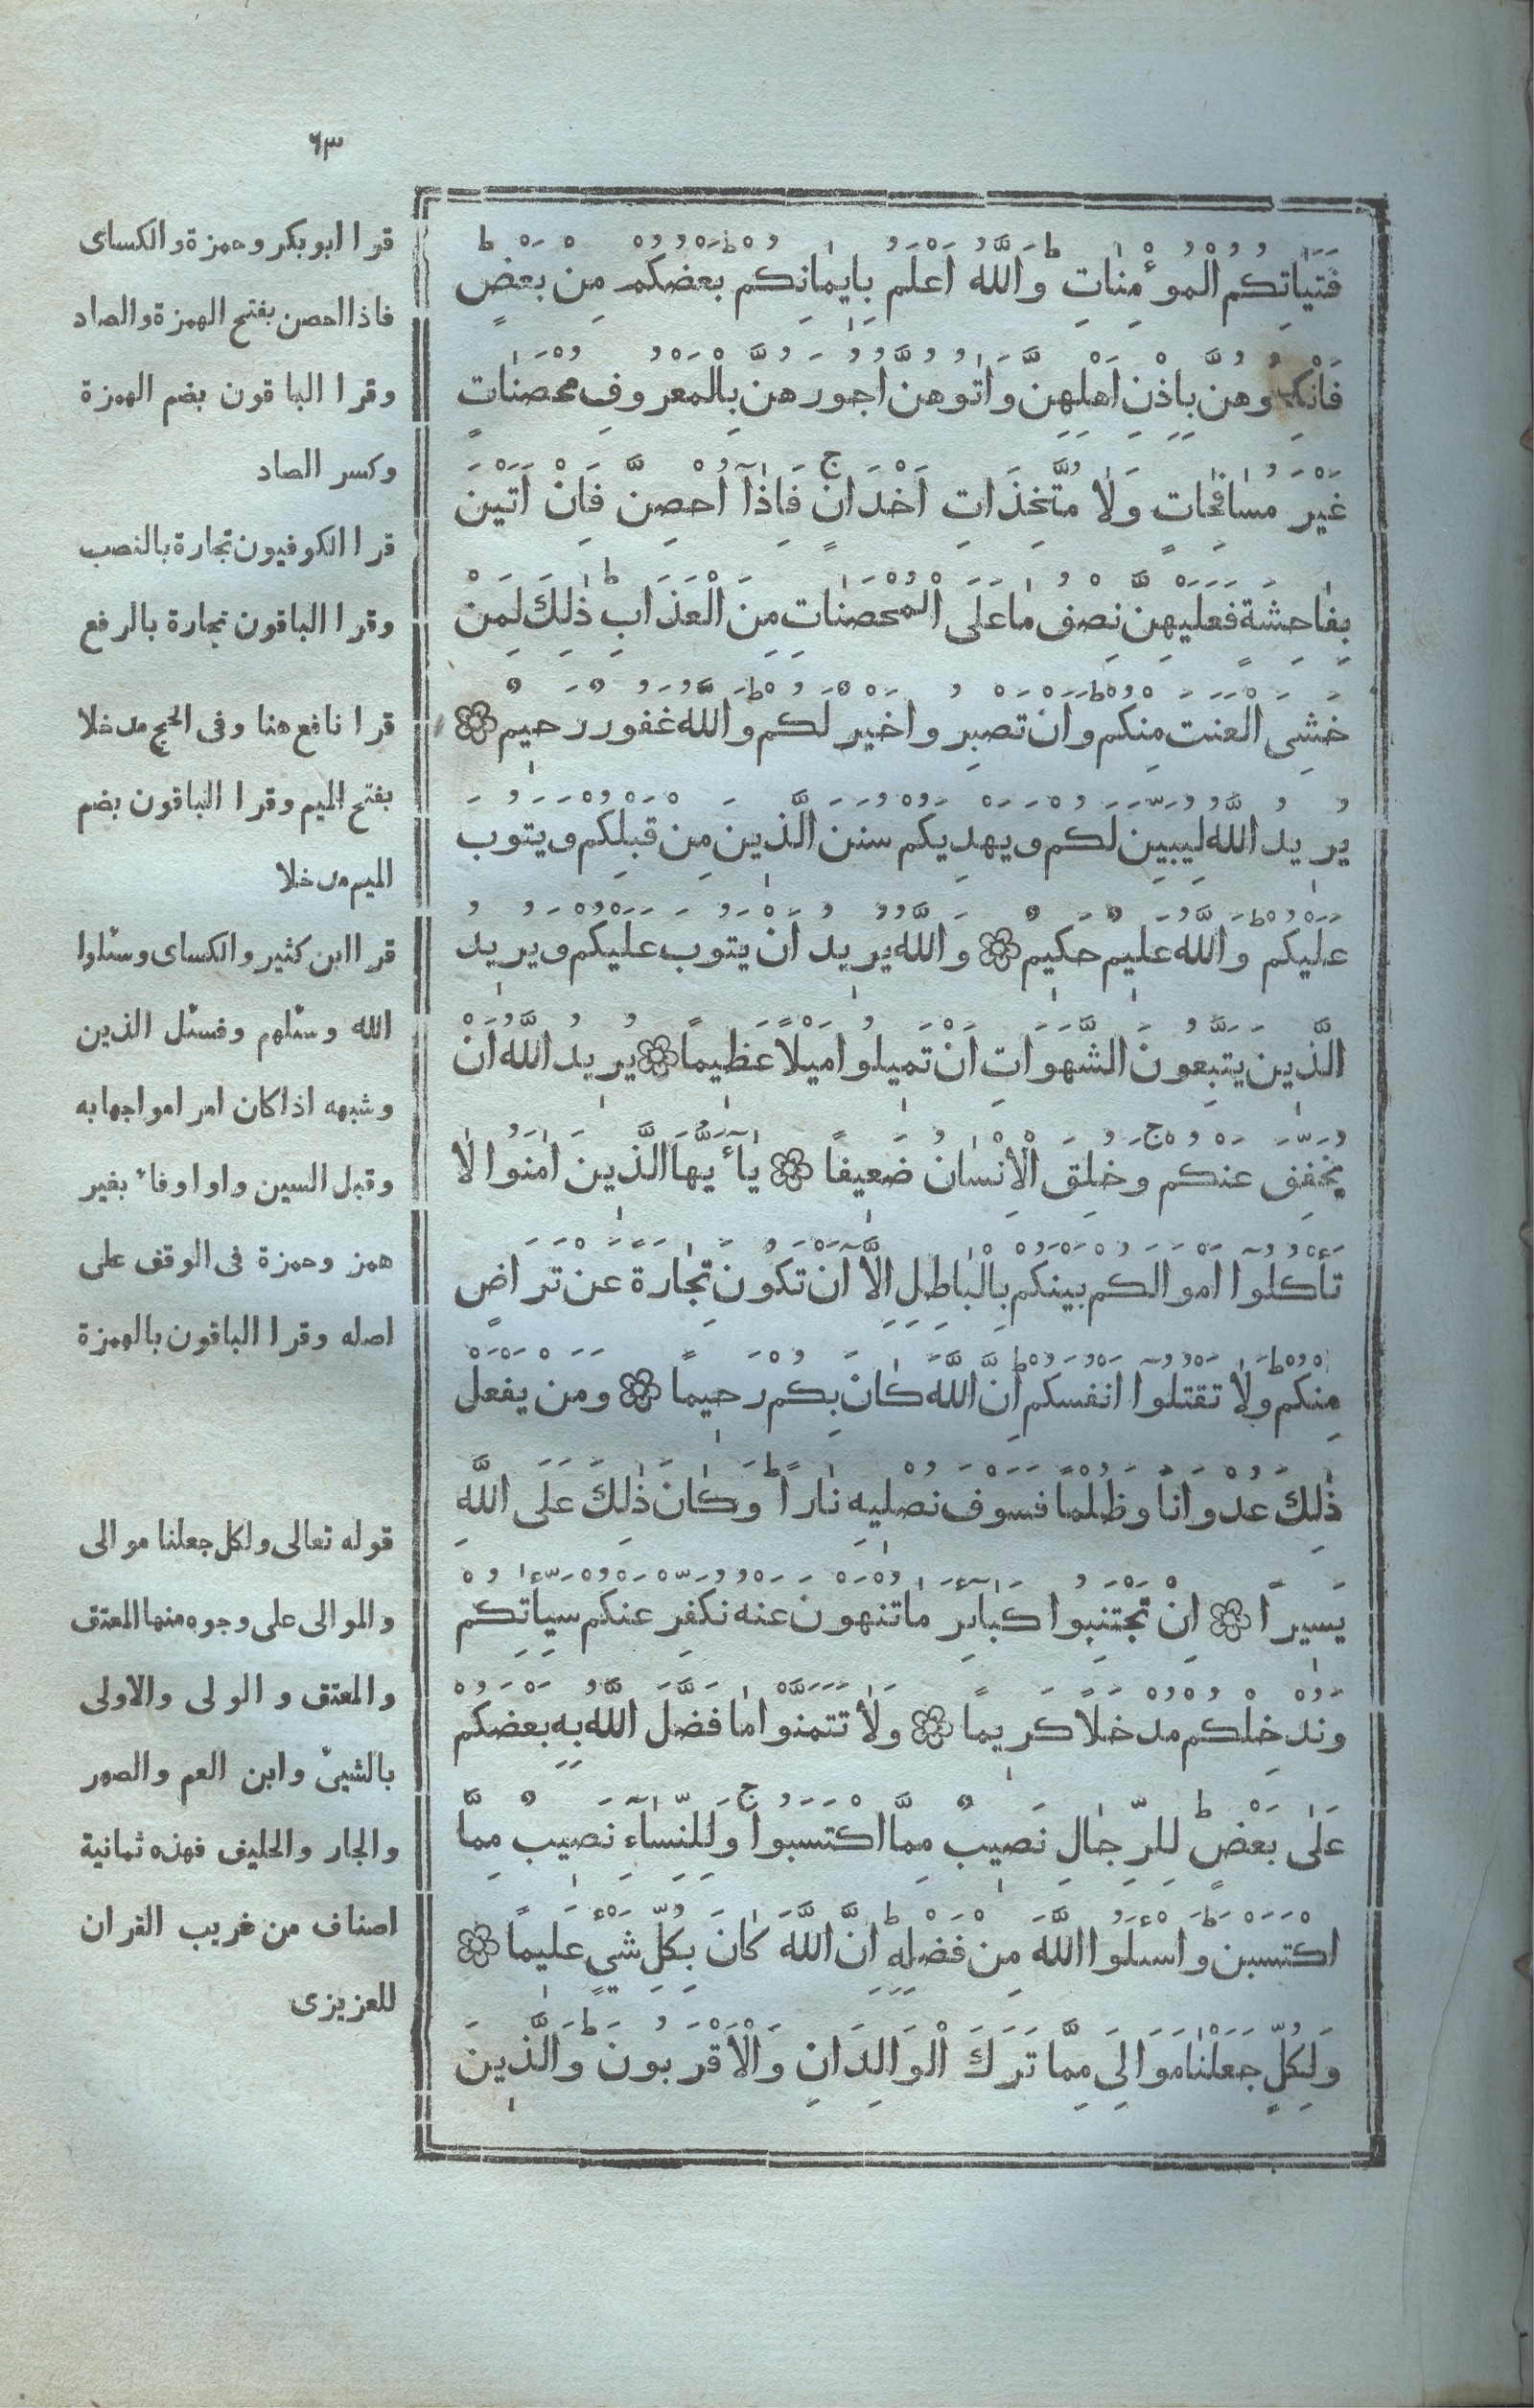 ٦٣
فَتَيٰاتِكُمُ الْمُوْءمِنٰاتِ ط وَاللّٰهُ اَعْلَمُ بِاِيمٰانِكُمْ ط بَعْضُكُمْ مِنْ بَعْضٍ ط
فَانْكِحُوهُنَّ بِاِذْنِ اَهْلِهِنَّ وَاٰتُوهُنَّ اُجُورَهُنَّ بِالْمَعْرُوفِ مُحْصَنٰاتٍ
غَيْرَ مُسٰافِحٰاتٍ وَلٰا مُتَّخِذَاتِ اَخْدَانٍ ج فَاِذٰآ اُحْصِنَّ فَاِنْ اَتَيْنَ
بِفٰاحِشَةٍ فَعَلَيْهِنَّ نِصْفُ مٰا عَلَى الْمُحْصَنٰاتِ مِنَ الْعَذَابِ ط ذٰلِكَ لِمَنْ
خَشِىَ الْعَنَتَ مِنْكُمْ ط وَاَنْ تَصْبِرُوا خَيْرٌ لَكُمْ ط وَاللّٰهُ غَفُورٌ رَحِيمٌ
يُرِيدُ اللّٰهُ لِيُبَيِّنَ لَكُمْ وَيَهْدِيَكُمْ سُنَنَ الَّذِينَ مِنْ قَبْلِكُمْ وَيَتُوبَ
عَلَيْكُمْ ط وَاللّٰهُ عَلِيمٌ حَكِيمٌ وَاللّٰهُ يُرِيدُ اَنْ يَتُوبَ عَلَيْكُمْ وَيُرِيدُ
الَّذِينَ يَتَّبِعُونَ الشَّهَوَاتِ اَنْ تَمِيلُوا مَيْلًا عَظِيمًا يُرِيدُ اللّٰهُ اَنْ
يُخَفِّفَ عَنْكُمْ ج وَخُلِقَ الْاِنْسٰانُ ضَعِيفًا يٰآءَيُّهَا الَّذِينَ اٰمَنُوا لٰا
تَأْكُلُوآ اَمْوَالَكُمْ بَيْنَكُمْ بِالْبٰاطِلِ اِلَّآ اَنْ تَكُونَ تِجٰارَةً عَنْ تَرَاضٍ
مِنْكُمْ ط وَلٰا تَقْتُلُوآ اَنْفُسَكُمْ ط اِنَّ اللّٰهَ كٰانَ بِكُمْ رَحِيمًا وَمَنْ يَفْعَلْ
ذٰلِكَ عُدْوَانًا وَظُلْمًا فَسَوْفَ نُصْلِيهِ نٰارًا ط وَكٰانَ ذٰلِكَ عَلَى اللّٰهِ
يَسِيرًا اِنْ تَجْتَنِبُوا كَبٰآئِرَ مٰا تُنْهَوْنَ عَنْهُ نُكَفِّرْ عَنْكُمْ سَيِّئٰاتِكُمْ
وَنُدْخِلْكُمْ مُدْخَلًا كَرِيمًا وَلٰا تَتَمَنَّوْا مٰا فَضَّلَ اللّٰهُ بِهِ بَعْضَكُمْ
عَلٰى بَعْضٍ ط لِلرِّجٰالِ نَصِيبٌ مِمَّا اكْتَسَبُوا ج وَلِلنِّسٰآءِ نَصِيبٌ مِمَّا
اكْتَسَبْنَ ط وَاسْئَلُوا اللّٰهَ مِنْ فَضْلِهِ ط اِنَّ اللّٰهَ كٰانَ بِكُلِّ شَيْءٍ عَلِيمًا
وَلِكُلٍّ جَعَلْنٰا مَوَالِىَ مِمَّا تَرَكَ الْوَالِدَانِ وَالْاَقْرَبُونَ ط وَالَّذِينَ
قرا ابو بكر وحمزة والكساى
فاذا احصن بفتح الهمزة والصاد
وقرا الباقون بضم الهمزة
وكسر الصاد
قرا الكوفيون تجارة بالنصب
وقرا الباقون تجارة بالرفع
قرا نافع هنا وفى الحج مدخلا
بفتح الميم وقرا الباقون بضم
الميم مدخلا
قرا ابن كثير والكساى وسئلوا
الله وسئلهم وفسئل الذين
وشبهه اذا كان امرا مواجها به
وقبل السين واو اوفاء بغير
همز وحمزة فى الوقف على
اصله وقرا الباقون بالهمزة
قوله تعالى ولكل جعلنا موالى
والموالى على وجوه منها المعتق
والمعتق و الولى والاولى
بالشيئ وابن العم والصهر
والجار والحليف فهذه ثمانية
اصناف من غريب القران
للعزيزى